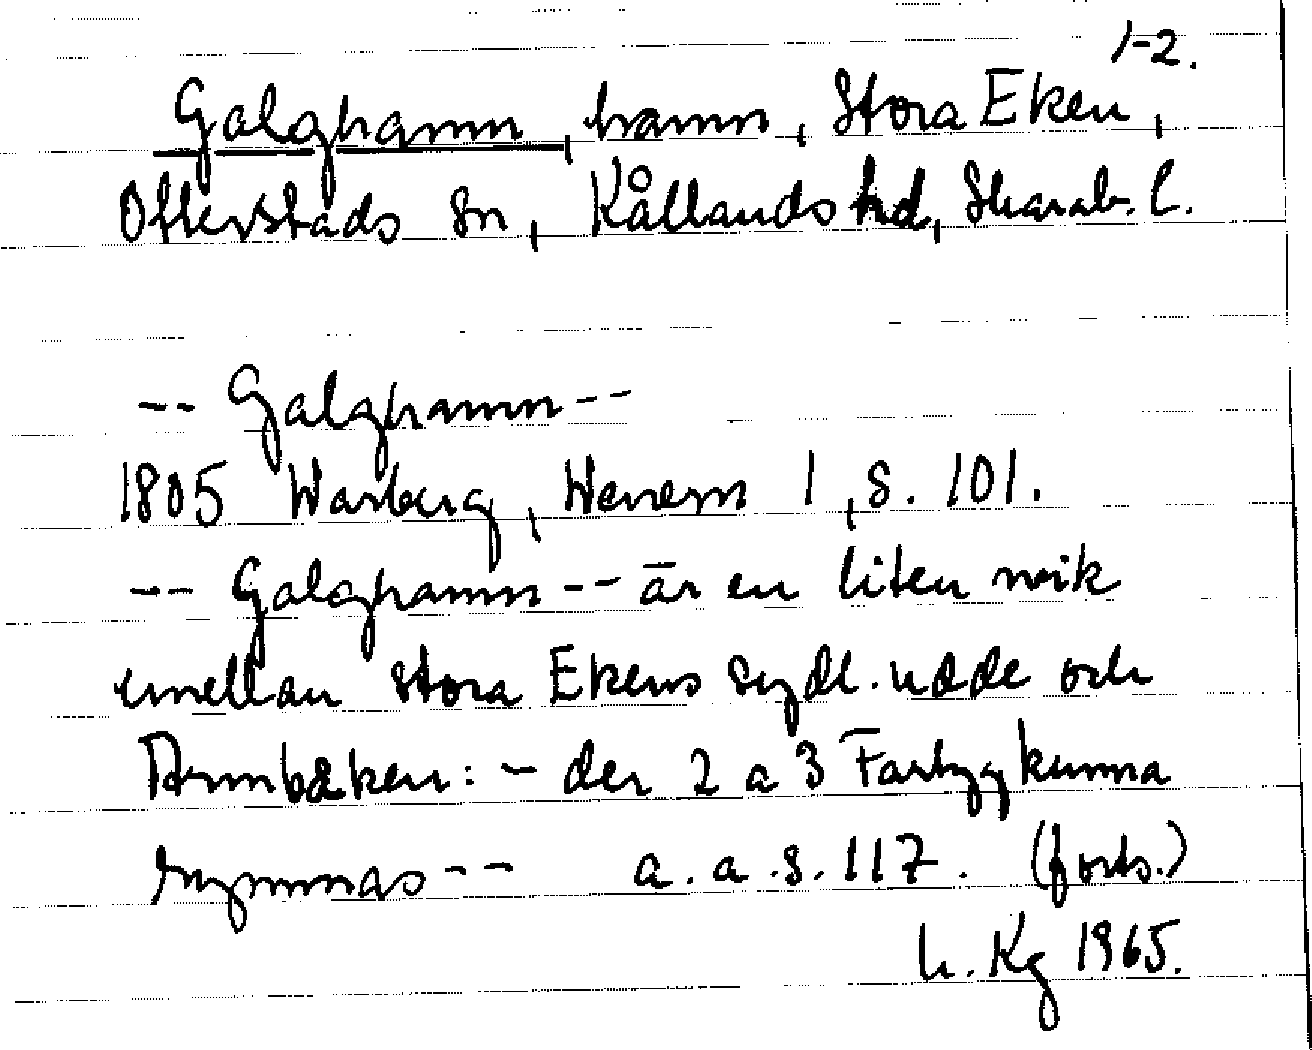 1-2.
Galghamn, hamn, Stora Eken,
Otterstads sn, Kållands hd, Skarab. l.
-- Galghamn --
1805 Warberg, Wenern 1, s. 101.
-- Galghamn -- är en liten wik
emellan Stora Ekens sydl. udde och
: - der 2 a 3 Fartyg kunna
rymmas -- a. a. s. 117. (forts.)
Kg 1965.